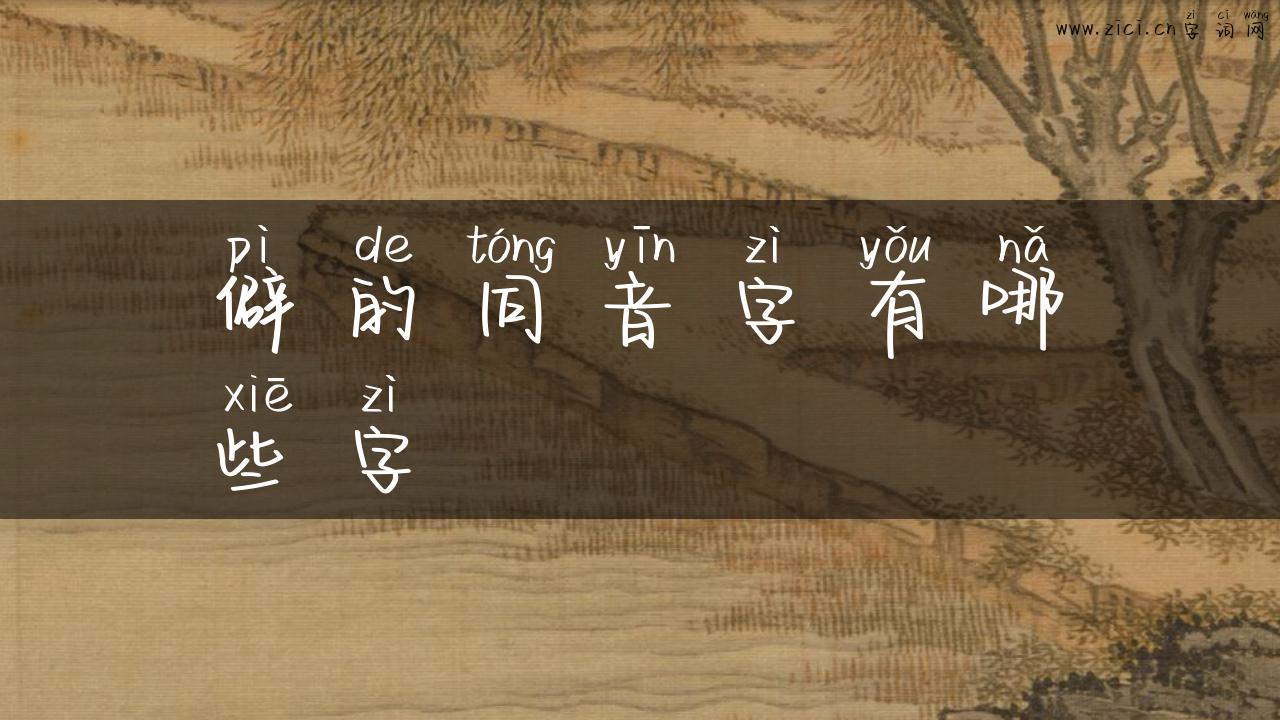 zì cí wǎng
www.zici.cn字词网
pì de tóng yīn zì yǒu nǎ
僻的同音字有哪
xiē zì
些字